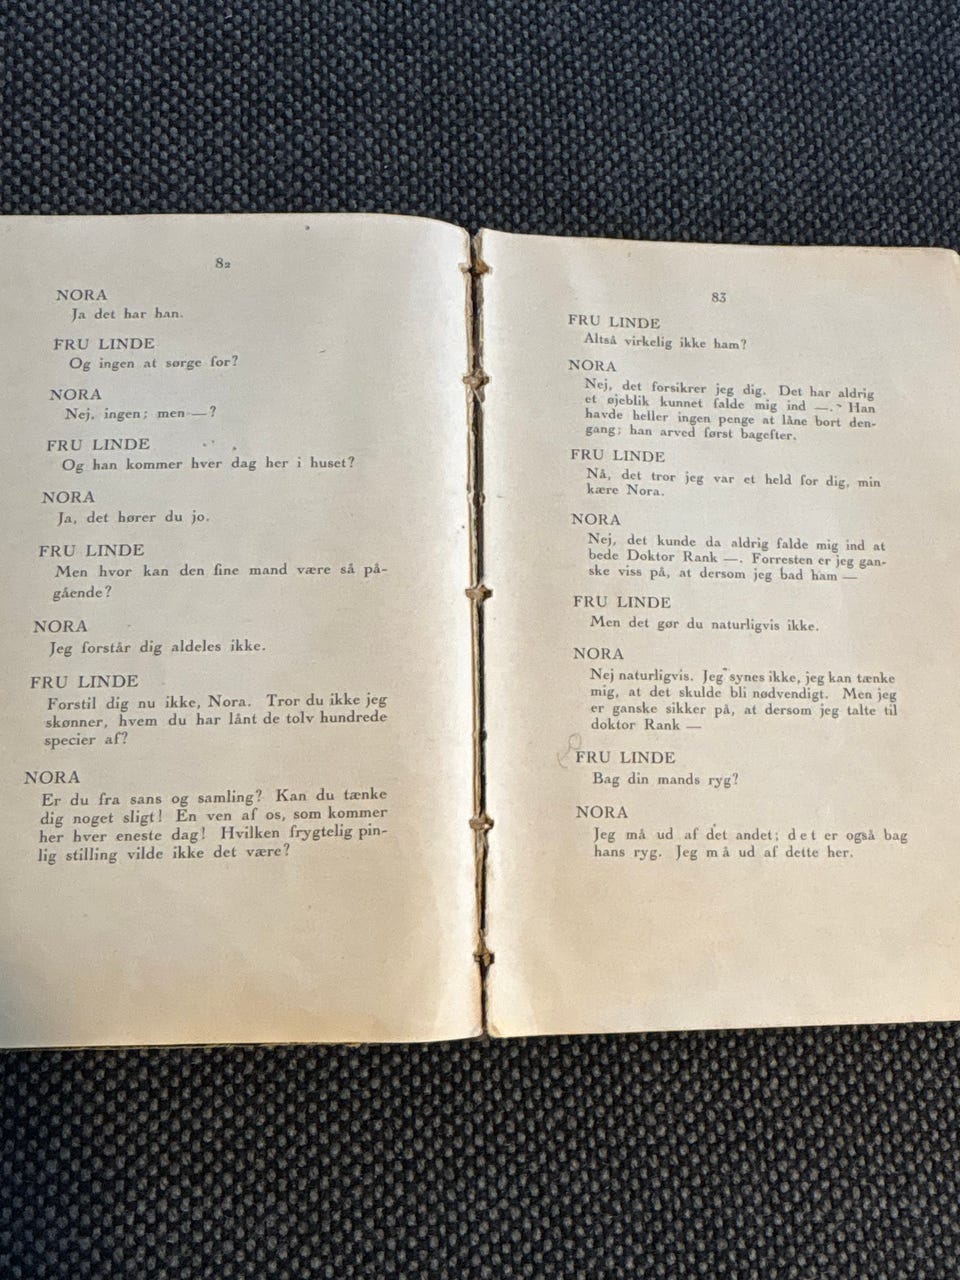 82
NORA
Ja det har han.
FRU LINDE
Og ingen at sørge for?
NORA
Nej, ingen; men — ?
FRU LINDE
Og han kommer hver dag her i huset?
NORA
Ja, det hører du jo.
FRU LINDE
Men hvor kan den fine mand være så på-
gående?
NORA
Jeg forstår dig aldeles ikke.
FRU LINDE
Forstil dig nu ikke, Nora. Tror du ikke jeg
skønner, hvem du har lånt de tolv hundrede
specier af?
NORA
Er du fra sans og samling? Kan du tænke
dig noget sligt! En ven af os, som kommer
her hver eneste dag! Hvilken frygtelig pin-
lig stilling vilde ikke det være?
83
FRU LINDE
Altså virkelig ikke ham?
NORA
Nej, det forsikrer jeg dig. Det har aldrig
et øjeblik kunnet falde mig ind —. Han
havde heller ingen penge at låne bort den-
gang; han arved først bagefter.
FRU LINDE
Nå, det tror jeg var et held for dig, min
kære Nora.
NORA
Nej, det kunde da aldrig falde mig ind at
bede Doktor Rank —. Forresten er jeg gan-
ske viss på, at dersom jeg bad ham —
FRU LINDE
Men det gør du naturligvis ikke.
NORA
Nej naturligvis. Jeg synes ikke, jeg kan tænke
mig, at det skulde bli nødvendigt. Men jeg
er ganske sikker på, at dersom jeg talte til
doktor Rank —
FRU LINDE
Bag din mands ryg?
NORA
Jeg må ud af det andet; d e t er også bag
hans ryg. Jeg m å ud af dette her.